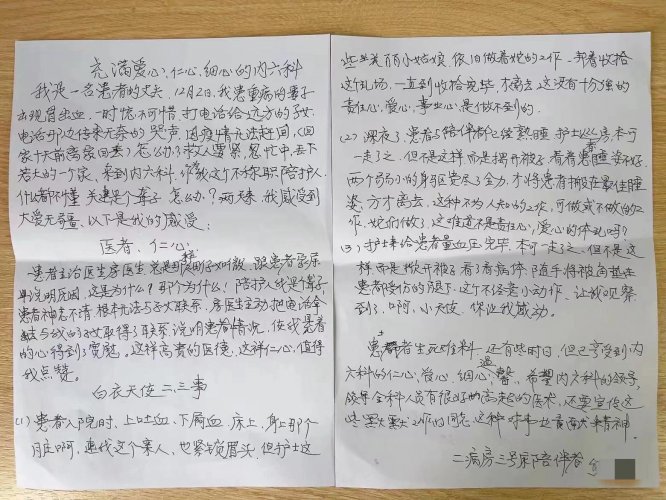 充满爱心、仁心、细心的内六科
我是一名患者的丈夫，12月2日，我患重病的妻子
出现冒出血，一时惊不可惜，打电话给远方的子女，
电话那边传来无奈的哭声，因疫情无法赶回，（回
家十天前离家回去）怎么办？救人要紧，急忙中，丢下
若大的一个家，来到内六科，
什么都不懂，关患是个聋子，怎么办？两天来，我感受到
大爱无疆，以下是我的感受：
医者、仁心
患者主治医生房医生总是
单说明原因，这是为什么？那个为什么，陪护人线是聋子
患者神志不清，根本无法与子女联系，房医生主动把电话
与线的子女取得了联系，说明患者情况，使我患者
的心得到了宽慰。这样高贵的医德，这样仁心，值得
我点赞。
白衣天使二、三事
（1）患者入院时，上吐血、下屙血，床上，身上那个
脏啊，连我这个亲人，也紧锁眉头，但护士这
些美丽小姑娘，依旧做着她的工作，帮着收拾
这乱场，一直到收拾完毕，才离去，这没有十分强的
责任心，爱心，事业心是做不到的。
（2）深夜了，患者与陪伴者已经熟睡，护士丛房，本可
一走了之，但不是这样，而是揭开被子，看着患者睡姿不好，
两个弱小的身躯费尽了全力，才将患者搬在最佳睡
姿，方才离去，这种不为人知的工作，可做或不做的工
作，她们做了，这难道不是责任心，爱心的体现吗？
（3）护士来给患者量血压完毕，本可一走了之，但不是这
样，而是掀开被子看了看病情，随手将被角垫在
患者踡伤的腿下，这个不经意小动作，让我观察
到了，啊，小天使，你让我感动。
患者生死难料，还有些时日，但已享受到内
六科的仁心，爱心，细心，希望内六科的领导，
领导全科人员有很好的高超的医术，还要宣传这
些默默工作的同志，这种对事业最高大精神
二病房三号床陪伴者